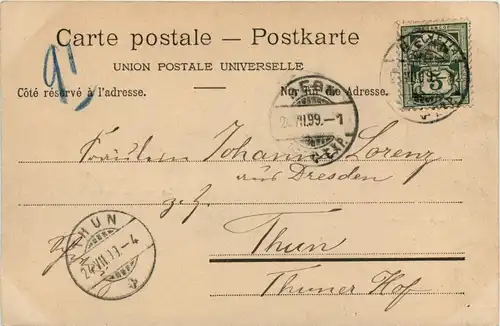 Carte postale — Postkarte
UNION POSTALE UNIVERSELLE
Côté réservé à l'adresse. Nur für die Adresse.
9
5
VII.99.–1
Fräulein Johanna Lorenz
aus Dresden
z. Z.
THUN
24.VII.99.–4
Thun
Thuner Hof